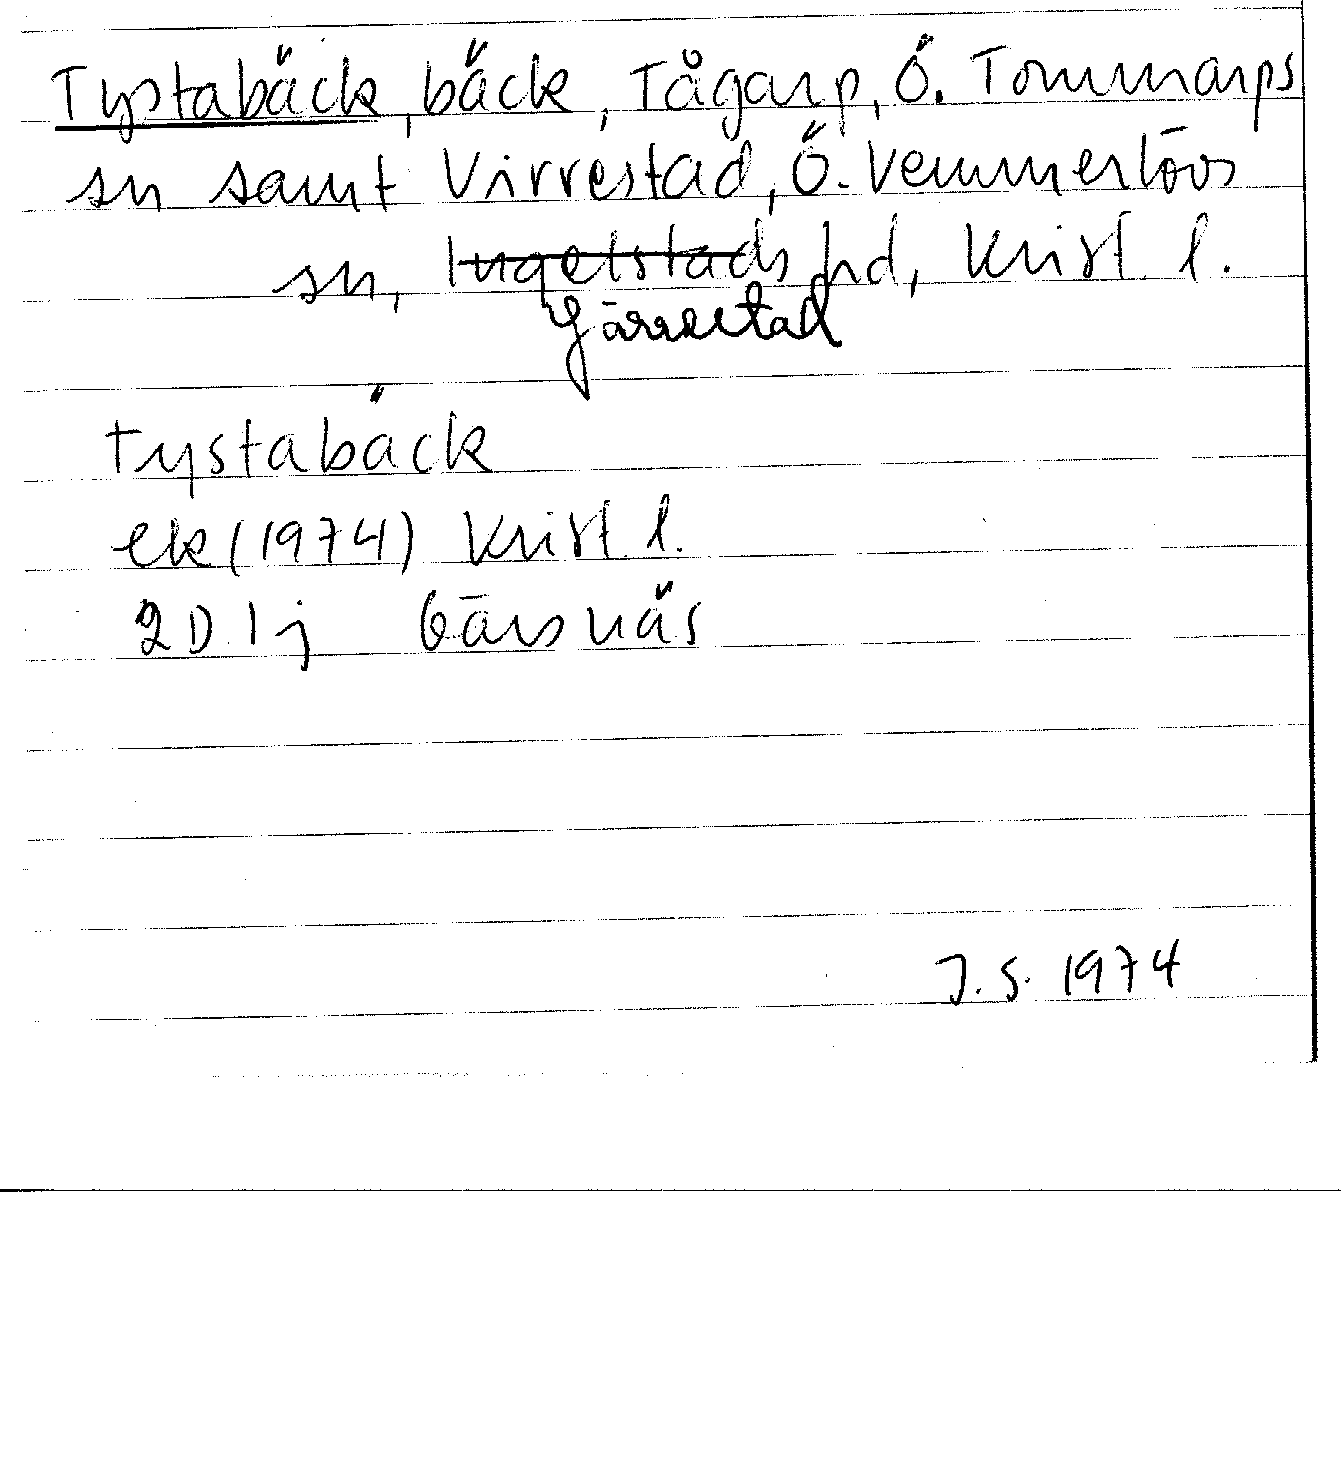 Tystabäck, bäck, Tågarp, Ö. Tommarps
sn samt Virrestad, Ö. Vemmerlövs
sn, Ingelstads hd, Krist l.
Järrestad
Tystabäck
ek (1974) Krist l.
2D 1j Gärsnäs
J. S. 1974